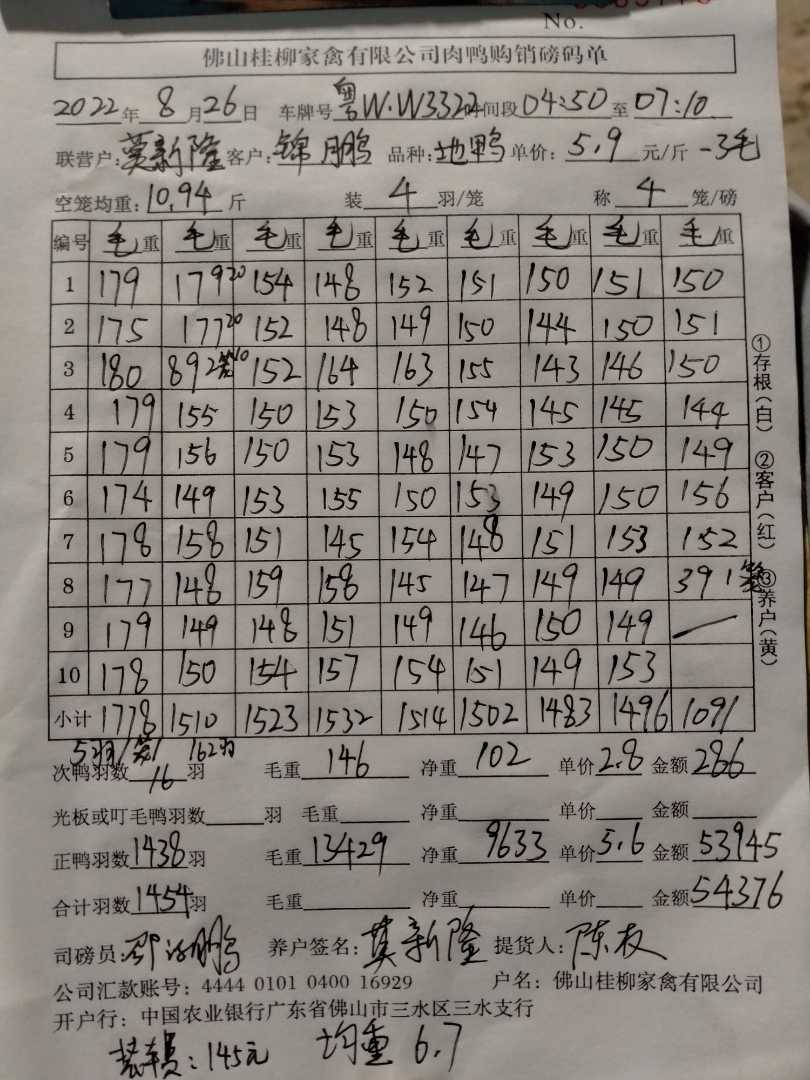 No.
佛山桂柳家禽有限公司肉鸭购销磅码单
2022年 8 月 26 日 车牌号 粤W·W3322 时间段 04:50 至 07:10
联营户:莫新隆 客户:锦鹏 品种:地鸭 单价:5.9 元/斤 -3毛
空笼均重:10.94 斤 装 4 羽/笼 称 4 笼/磅
编号 毛重 毛重 毛重 毛重 毛重 毛重 毛重 毛重 毛重
1 179 179 20 154 148 152 151 150 151 150
2 175 177 20 152 148 149 150 144 150 151
3 180 89 2笼 10 152 164 163 155 143 146 150
4 179 155 150 153 150 154 145 145 144
5 179 156 150 153 148 147 153 150 149
6 174 149 153 155 150 153 149 150 156
7 178 158 151 145 154 148 151 153 152
8 177 148 159 158 145 147 149 149 39 1笼
9 179 149 148 151 149 146 150 149 —
10 178 150 154 157 154 151 149 153
小计 1778 1510 1523 1532 1514 1502 1483 1496 1091
5羽/笼 162羽
次鸭羽数 16 羽 毛重 146 净重 102 单价 2.8 金额 286
光板或叮毛鸭羽数 羽 毛重 净重 单价 金额
正鸭羽数 1438 羽 毛重 13429 净重 9633 单价 5.6 金额 53945
合计羽数 1454 羽 毛重 净重 单价 金额 54376
司磅员: 鹏 养户签名:莫新隆 提货人:陈权
公司汇款账号:4444 0101 0400 16929 户名:佛山桂柳家禽有限公司
开户行:中国农业银行广东省佛山市三水区三水支行
装车费:145元 均重 6.7
①存根(白) ②客户(红) ③养户(黄)